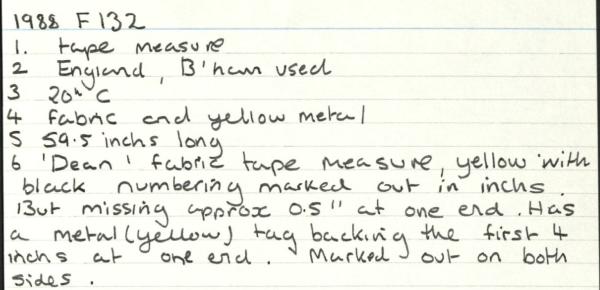 1988 F 132
1. tape measure
2 England, B'ham used
3 20th C
4 fabric and yellow metal
5 59.5 inchs long
6 'Dean' fabric tape measure, yellow with
black numbering marked out in inchs.
But missing approx 0.5" at one end. Has
a metal (yellow) tag backing the first 4
inchs at one end. Marked out on both
sides.